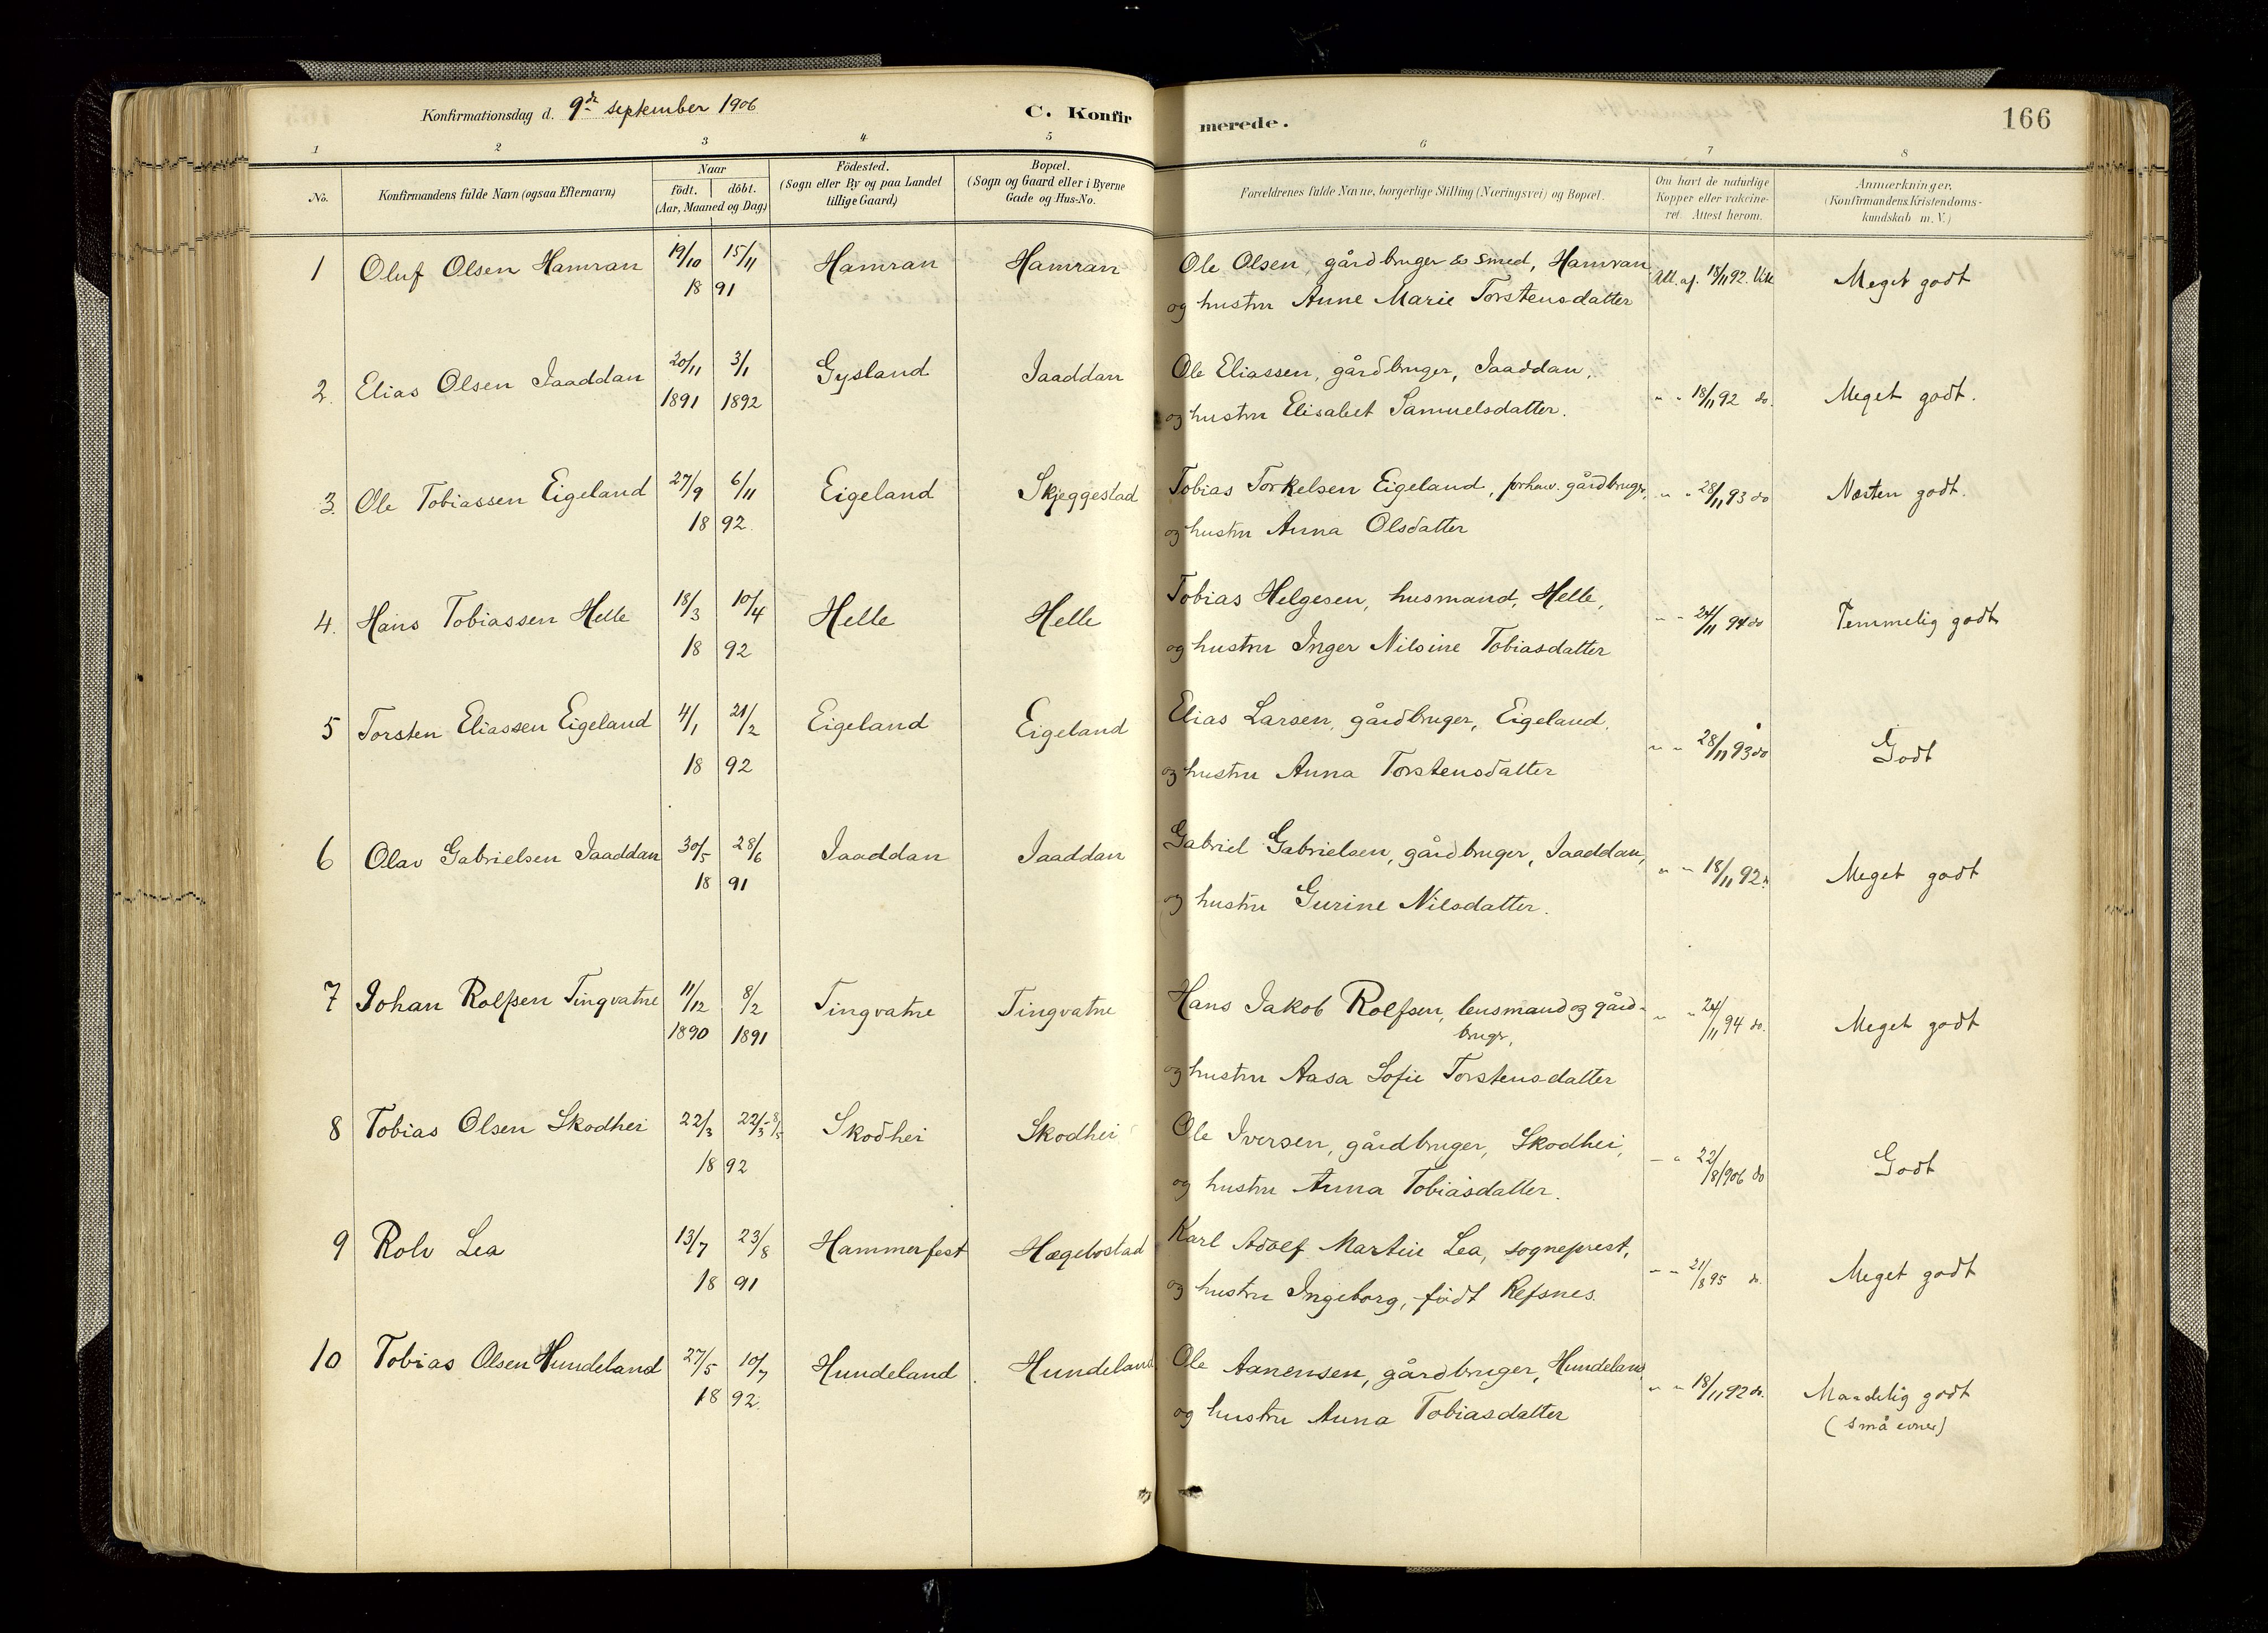 Konfirmationsdag d. 9de september 1906
C. Konfirmerede.
166
1 2 3 4 5 6 7 8
No.
Konfirmandens fulde Navn (ogsaa Efternavn)
Naar
födt. döbt.
(Aar, Maaned og Dag)
Födested.
(Sogn eller By og paa Landet
tillige Gaard)
Bopæl.
(Sogn og Gaard eller i Byerne
Gade og Hus-No.
Forældrenes fulde Navne, borgerlige Stilling (Næringsvei) og Bopæl.
Om havt de naturlige
Kopper eller vakcine-
ret. Attest herom.
Anmærkninger.
(Konfirmandens Kristendoms-
kundskab m. V.)
1 Oluf Olsen Hamran 19/10 15/11 Hamran Hamran Ole Olsen, gårdbruger & smed, Hamran Att. af. 18/11 92. Meget godt
18 91 og hustru Anne Marie Torstensdatter
2. Elias Olsen Iaaddan 20/11 3/1 Gysland Iaaddan Ole Eliassen, gårdbruger, Iaaddan, " " 18/11 92 do. Meget godt.
1891 1892 og hustru Elisabet Samuelsdatter.
3. Ole Tobiassen Eigeland 27/9 6/11 Eigeland Skjeggestad Tobias Torkelsen Eigeland, forhav. gårdbruger, " " 28/11 93 do Næsten godt.
18 92. og hustru Anna Olsdatter
4. Hans Tobiassen Helle 18/3 10/4 Helle Helle Tobias Helgesen, husmand, Helle, " " 24/11 94 do Temmelig godt
18 92 og hustru Inger Nilsine Tobiasdatter
5 Torsten Eliassen Eigeland 4/1 21/2 Eigeland Eigeland Elias Larsen, gårdbruger, Eigeland. " " 28/11 93 do Godt
18 92 og hustru Anna Torstensdatter
6 Olav Gabrielsen Iaaddan 30/5 28/6 Iaaddan Iaaddan Gabriel Gabrielsen, gårdbruger, Iaaddan, " " 18/11 92 Meget godt
18 91 og hustru Gurine Nilsdatter.
7 Johan Rolfsen Tingvatne 11/12 8/2 Tingvatne Tingvatne Hans Jakob Rolfsen, lensmand og gård- " " 24/11 94 do. Meget godt
1890 1891 bruger,
og hustru Aasa Sofie Torstensdatter
8 Tobias Olsen Skodhei 22/3 22/3-8/5 Skodhei Skodhei Ole Iversen, gårdbruger, Skodhei, " " 22/8 1906 do Godt
18 92 og hustru Anna Tobiasdatter.
9 Rolv Lea 13/7 23/8 Hammerfest Hægebostad Karl Adolf Martin Lea, sogneprest, " " 21/8 95 do. Meget godt
18 91 og hustru Ingeborg, født Refsnes.
10 Tobias Olsen Hundeland 27/5 10/7 Hundeland. Hundeland Ole Aanensen, gårdbruger, Hundeland " " 18/11 92 do. Maadelig godt
18 92. og hustru Anna Tobiasdatter (små evner)